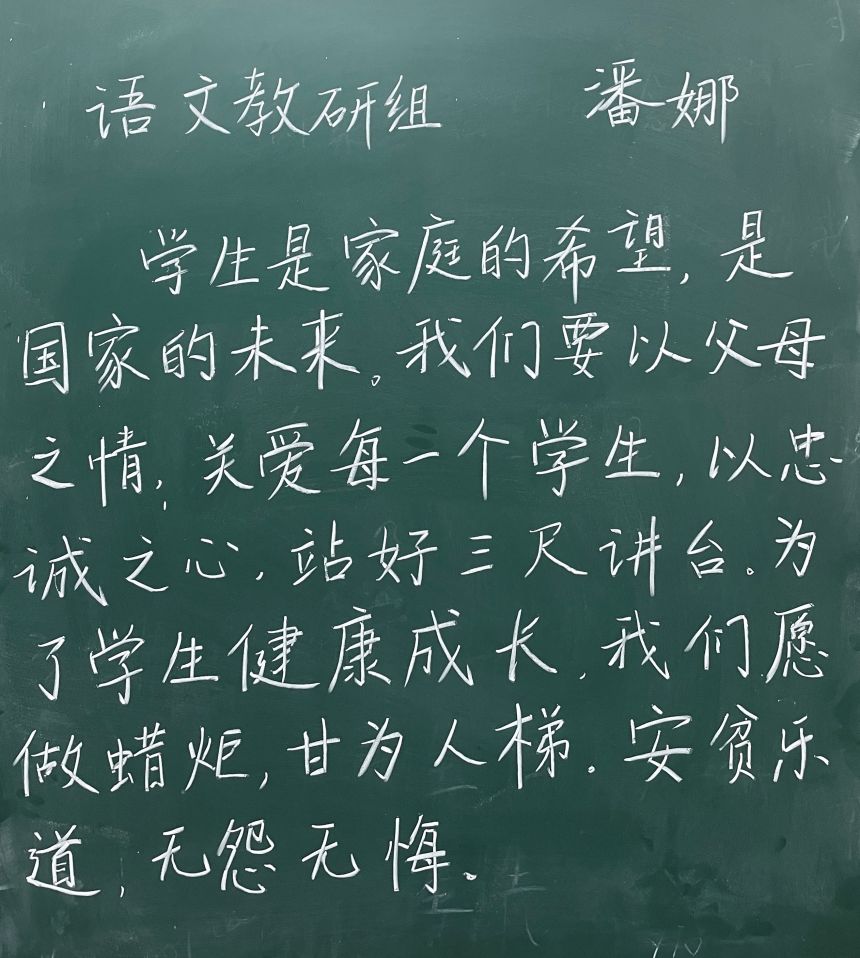 语文教研组 潘娜
学生是家庭的希望,是
国家的未来。我们要以父母
之情,关爱每一个学生,以忠
诚之心,站好三尺讲台。为
了学生健康成长,我们愿
做蜡炬,甘为人梯。安贫乐
道,无怨无悔。